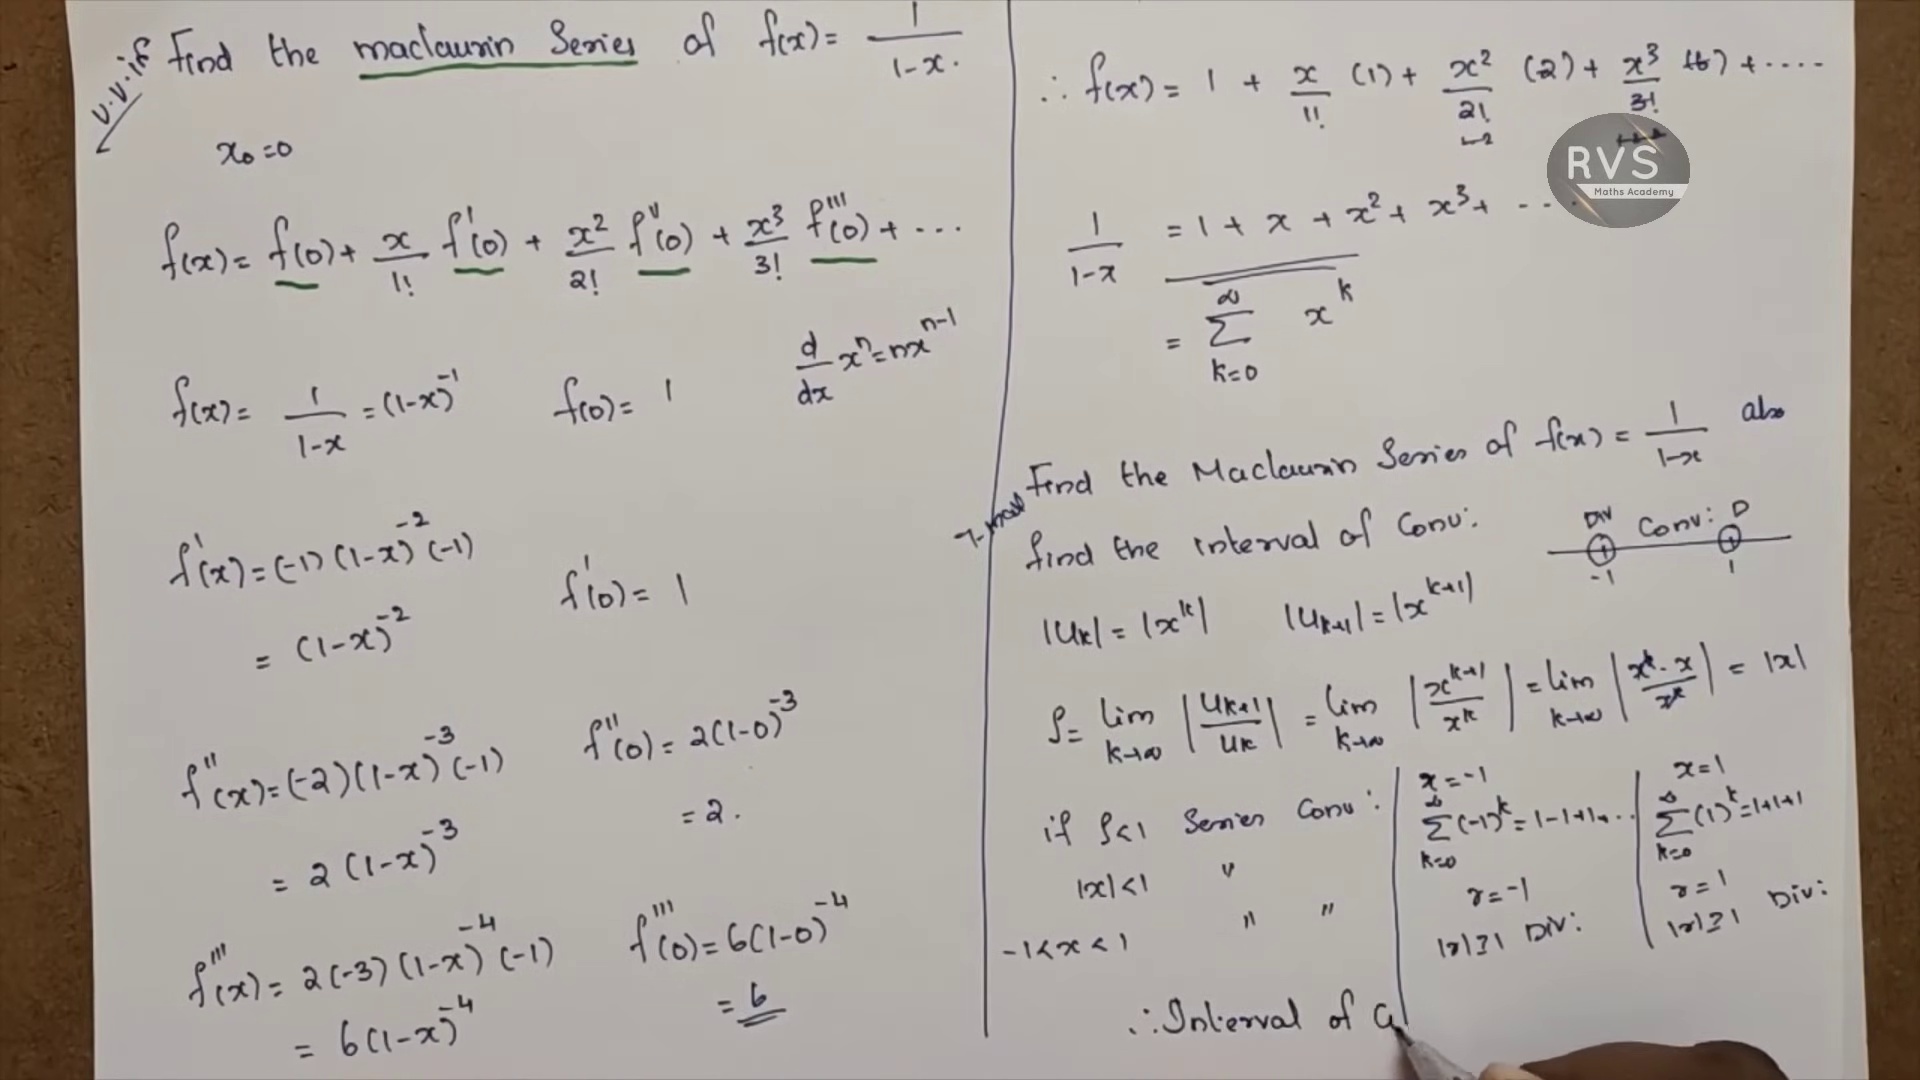 V.V.if Find the maclaurin Series of f(x) = 1/1-x.
x₀=0
f(x) = f(0) + x/1! f'(0) + x²/2! f''(0) + x³/3! f'''(0) + ...
d/dx xⁿ = nxⁿ⁻¹
f(x) = 1/1-x = (1-x)⁻¹ f(0) = 1
f'(x) = (-1)(1-x)⁻²(-1)
= (1-x)⁻² f'(0) = 1
f''(x) = (-2)(1-x)⁻³(-1) f''(0) = 2(1-0)⁻³
= 2(1-x)⁻³ = 2.
f'''(x) = 2(-3)(1-x)⁻⁴(-1) f'''(0) = 6(1-0)⁻⁴
= 6(1-x)⁻⁴ = 6
∴ f(x) = 1 + x/1! (1) + x²/2! (2) + x³/3! (6) + ....
RVS
Maths Academy
1/1-x = 1 + x + x² + x³ + ...
= ∞∑k=0 xᵏ
Find the Maclaurin Series of f(x) = 1/1-x also
find the interval of Conv:
Div Conv: D
-1 1
|Uk| = |xᵏ| |Uk+1| = |xᵏ⁺¹|
ρ = lim k→∞ |Uk+1/Uk| = lim k→∞ |xᵏ⁺¹/xᵏ| = lim k→∞ |xᵏ·x/xᵏ| = |x|
if ρ<1 Series Conv:
|x|<1 " 
-1<x<1 " "
x=-1
∞∑k=0 (-1)ᵏ = 1-1+1...
r=-1
|r|≥1 Div:
x=1
∞∑k=0 (1)ᵏ = 1+1+1
r=1
|r|≥1 Div:
∴ Interval of